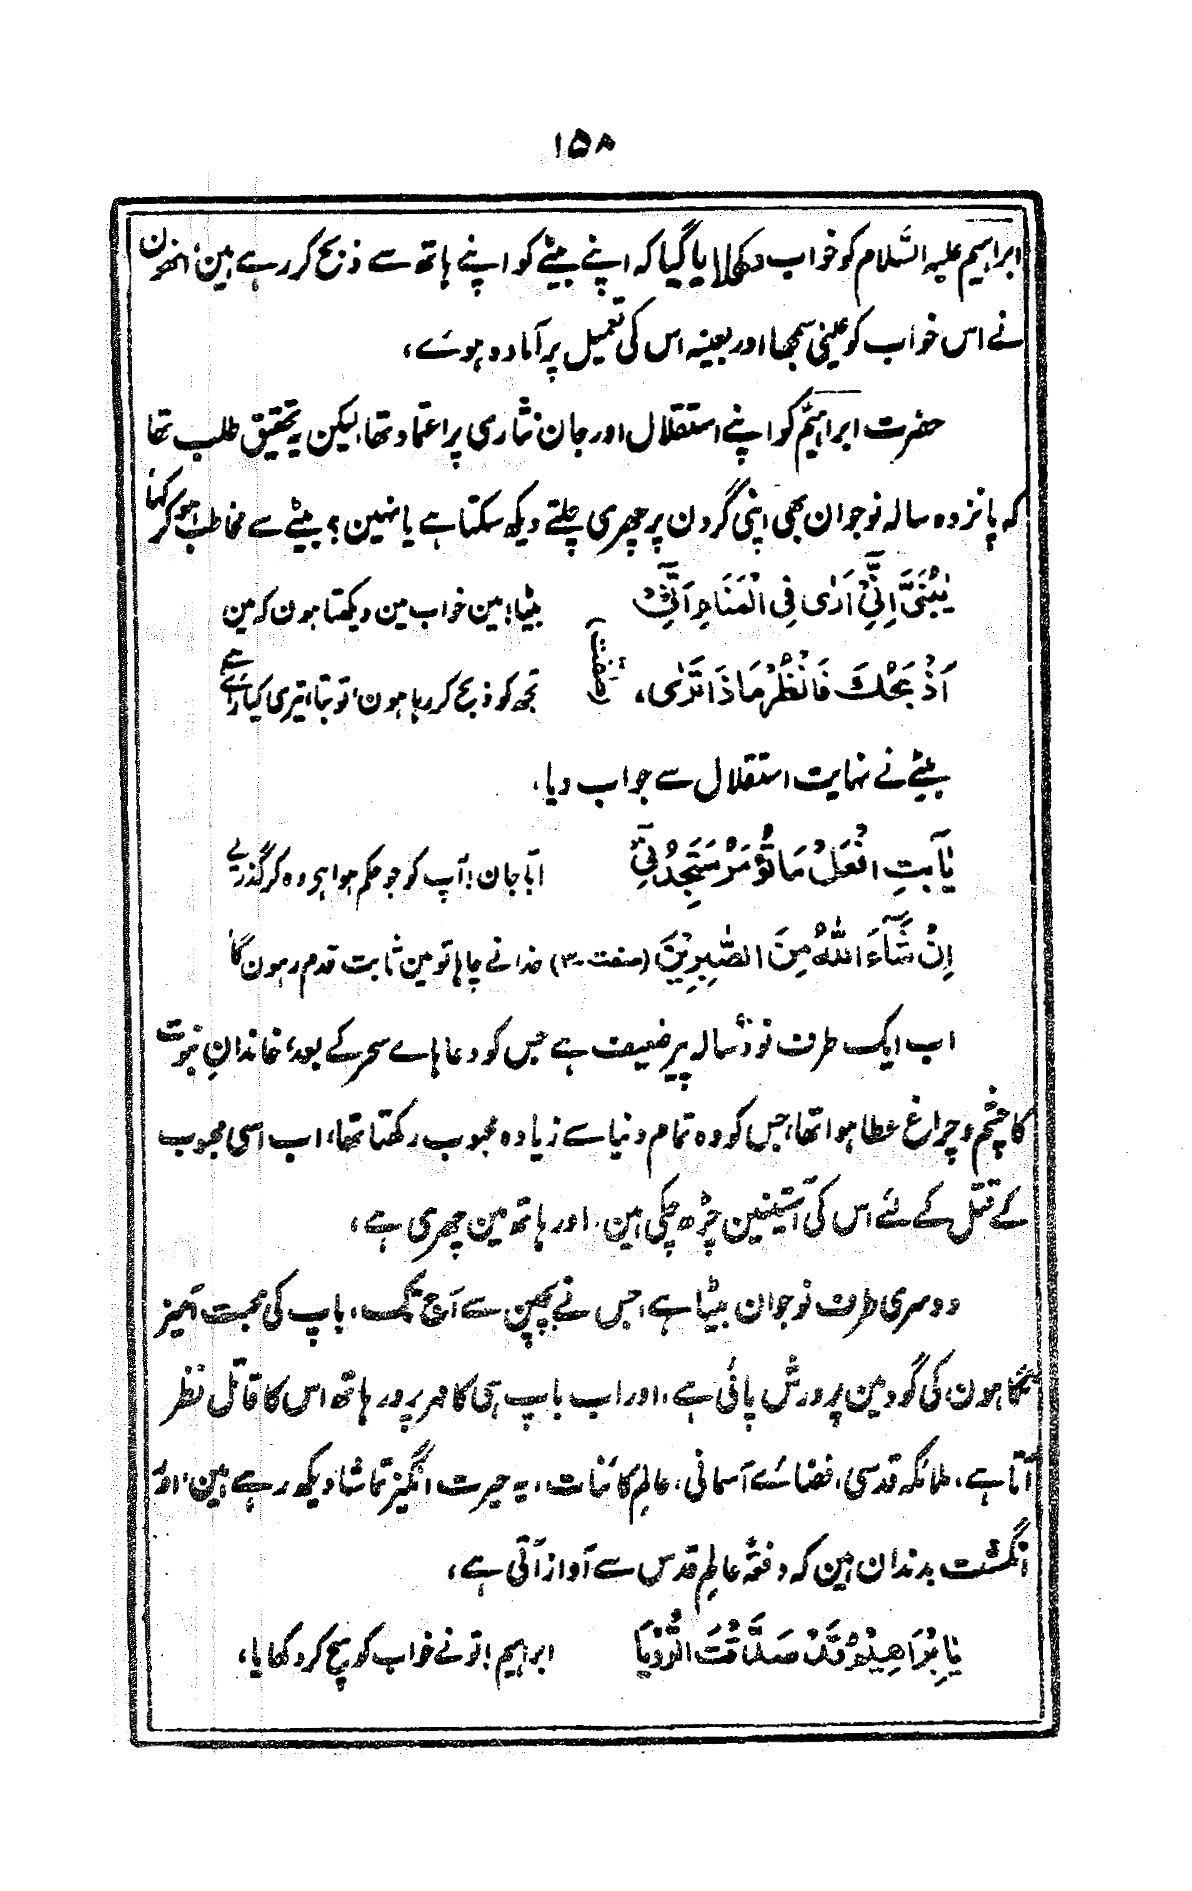 ۱۵۸
ابراہیم علیہ السَّلام کو خواب دکھلایا گیا کہ اپنے بیٹے کو اپنے ہاتھ سے ذبح کر رہے ہین، انھون
نے اس خواب کو عینی سمجھا اور بعینہ اس کی تعمیل پر آمادہ ہوے،
حضرت ابراہیمؑ کو اپنے استقلال اور جان نثاری پر اعتماد تھا، لیکن یہ تحقیق طلب تھا
کہ پانزدہ سالہ نوجوان بھی اپنی گردن پر چھری چلتے دیکھ سکتا ہے یا نہین؟ بیٹے سے مخاطب ہو کر کہا
يٰبُنَيَّ اِنِّيْٓ اَرٰى فِي الْمَنَامِ اَنِّيْٓ بیٹا! مین خواب مین دیکھتا ہون کہ مین
اَذْبَحُكَ فَانْظُرْ مَاذَا تَرٰى، (صٰفٰت) تجھ کو ذبح کر رہا ہون، تو بتا، تیری کیا راے ہے
بیٹے نے نہایت استقلال سے جواب دیا،
يٰٓاَبَتِ افْعَلْ مَا تُؤْمَرُ سَتَجِدُنِيْٓ ابا جان! آپ کو جو حکم ہوا ہو وہ کر گذریے
اِنْ شَآءَ اللّٰهُ مِنَ الصّٰبِرِيْنَ (صفت-۳) خدا نے چاہا تو مین ثابت قدم رہون گا
اب ایک طرف نوّد سالہ پیر ضعیف ہے جس کو دعاہاے سحر کے بعد، خاندانِ نبوت
کا چشم و چراغ عطا ہوا تھا، جس کو وہ تمام دنیا سے زیادہ محبوب رکھتا تھا، اب اسی محبوب
کے قتل کے لئے اس کی آستینین چڑھ چکی ہین، اور ہاتھ مین چھری ہے،
دوسری طرف نوجوان بیٹا ہے، جس نے بچپن سے آج تک، باپ کی محبت آمیز
نگاہون کی گود مین پرورش پائی ہے، اور اب باپ ہی کا مہر پرور ہاتھ اس کا قاتل نظر
آتا ہے، ملائکہ قدسی، فضاے آسمانی، عالم کائنات، یہ حیرت انگیز تماشا دیکھ رہے ہین، اور
انگشت بدندان ہین کہ دفعۃً عالمِ قدس سے آواز آتی ہے،
يٰٓاِبْرَاهِيْمُ قَدْ صَدَّقْتَ الرُّؤْيَا ابراہیم! تو نے خواب کو سچ کر دکھایا،